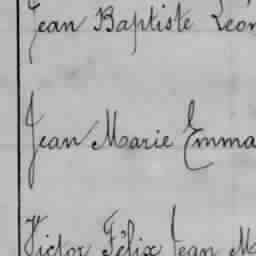 Jean Baptiste Léon
Jean Marie Emma
Victor Félix Jean Ma